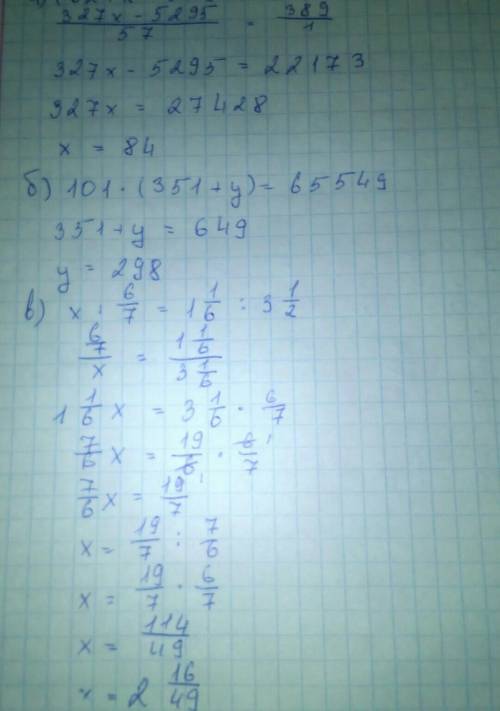 (327x - 5295)/57 = 389/1
327x - 5295 = 22173
327x = 27428
x = 84
б) 101 · (351 + y) = 65549
351 + y = 649
y = 298
в) x : 6/7 = 1 1/6 : 3 1/2
(6/7)/x = (1 1/6)/(3 1/6)
1 1/6 x = 3 1/6 · 6/7
7/6 x = 19/6 · 6/7
7/6 x = 19/7
x = 19/7 : 7/6
x = 19/7 · 6/7
x = 114/49
x = 2 16/49